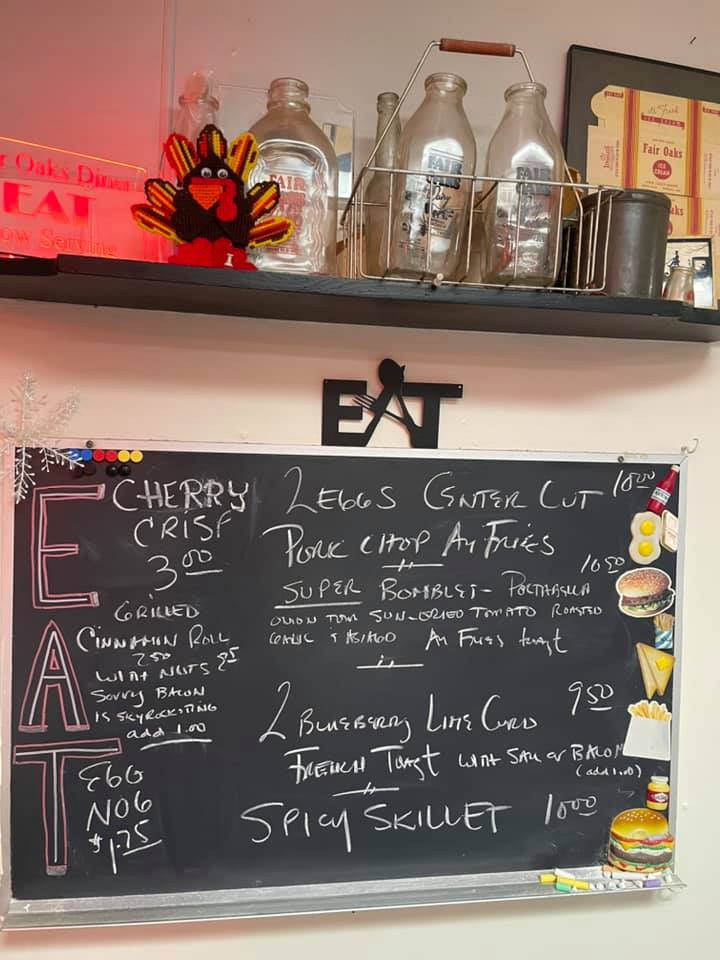 r Oaks Diner
EAT
ow Serving
FAIR
FAIR
OAKS
Dairy
FAIR
Fair Oaks
ICE CREAM
Fair Oaks
EAT
EAT
CHERRY
CRISP
3.00
GRILLED
CINNAMON ROLL
2.50
WITH NUTS
SORRY BACON
IS SKYROCKETING
add 1.00
EGG
NOG
$1.75
2 EGGS CENTER CUT 10.00
PORK CHOP AM FRIES
10.50
SUPER
ONION TOM SUN-DRIED TOMATO ROASTED
GARLIC & ASIAGO AM FRIES toast
9.50
2 BLUEBERRY LIME CURD
FRENCH TOAST WITH SAU or BACON
(add 1.00)
SPICY SKILLET 10.00